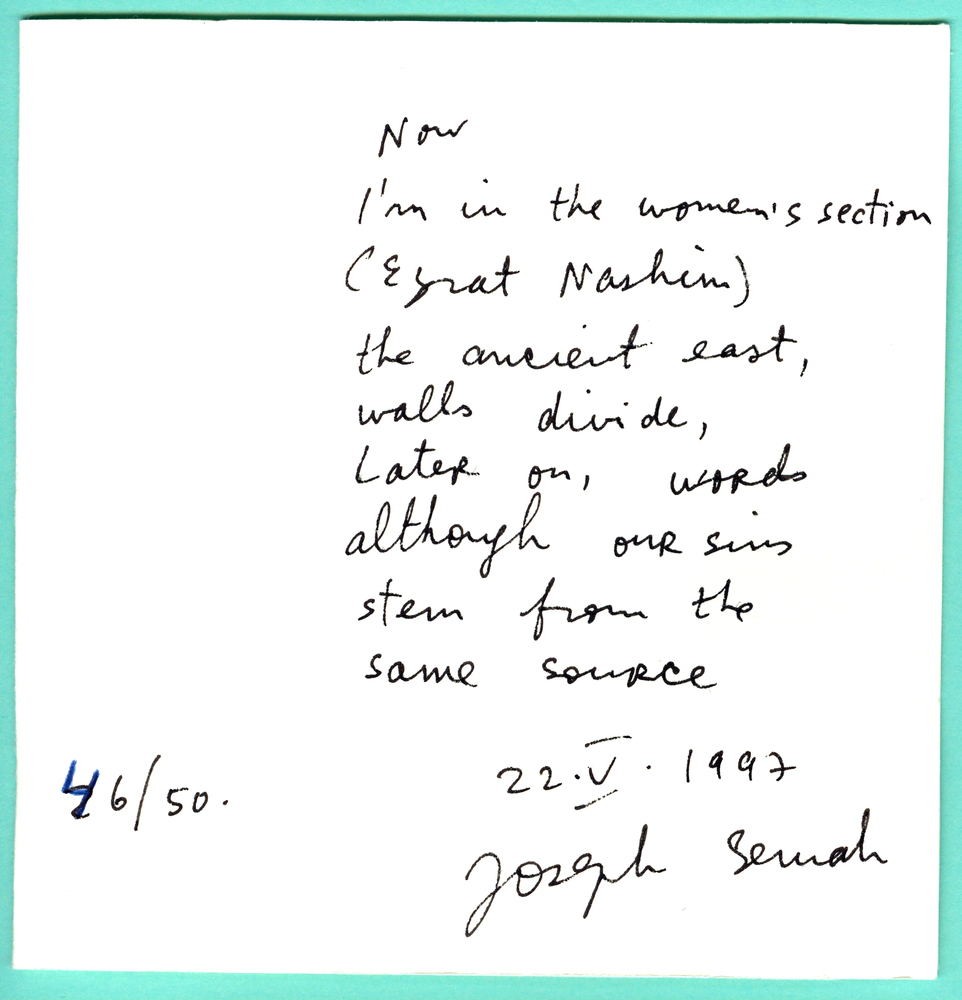 Now
I'm in the women's section
(Ezrat Nashim)
the ancient east,
walls divide,
Later on, words
although our sins
stem from the
same source
22.V.1997
46/50.
Joseph Semah